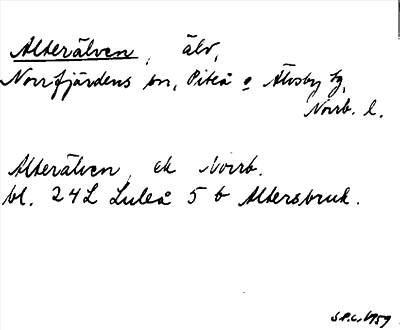 Alterälven, älv,
Norrfjärdens sn, Piteå o Älvsby tg,
Norrb. l.
Alterälven, ek Norrb.
bl. 24L Luleå 5 b Altersbruk.
1959